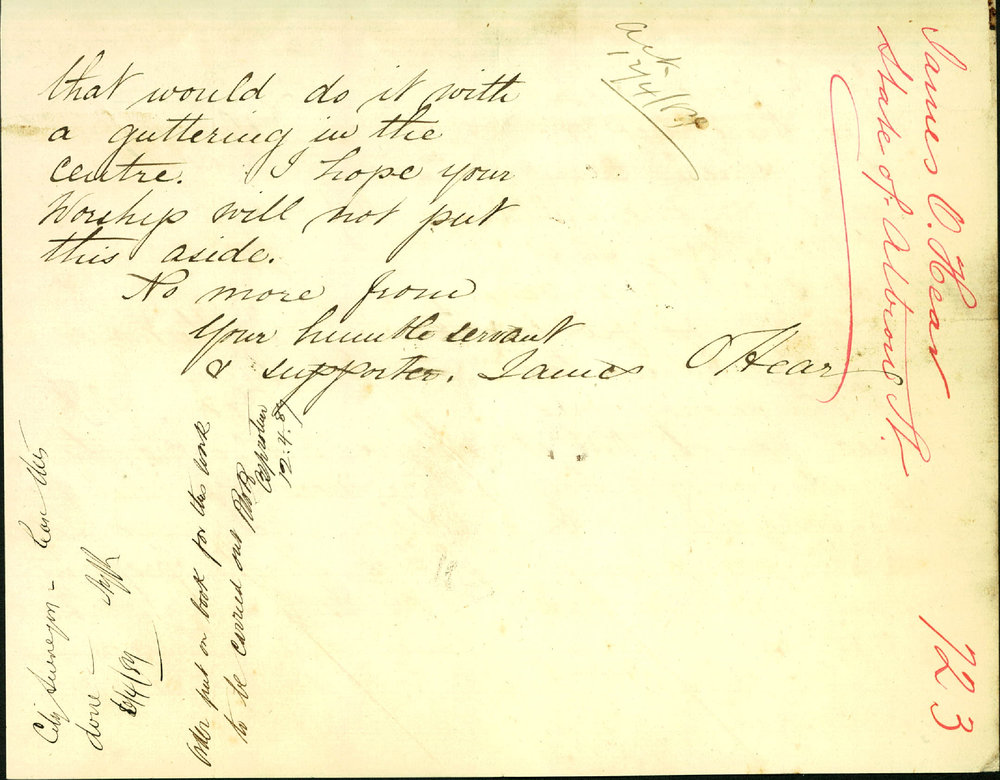 that would do it with
a guttering in the
centre. I hope your
Worship will not put
this aside.
No more from
Your humble servant
& supporter. James O Hear
ack
12/4/
James O. Hear
State of Albion St.
723
City Surveyor -
done -
/4/89
Order put on book for this work
to be carried out
12.4.89